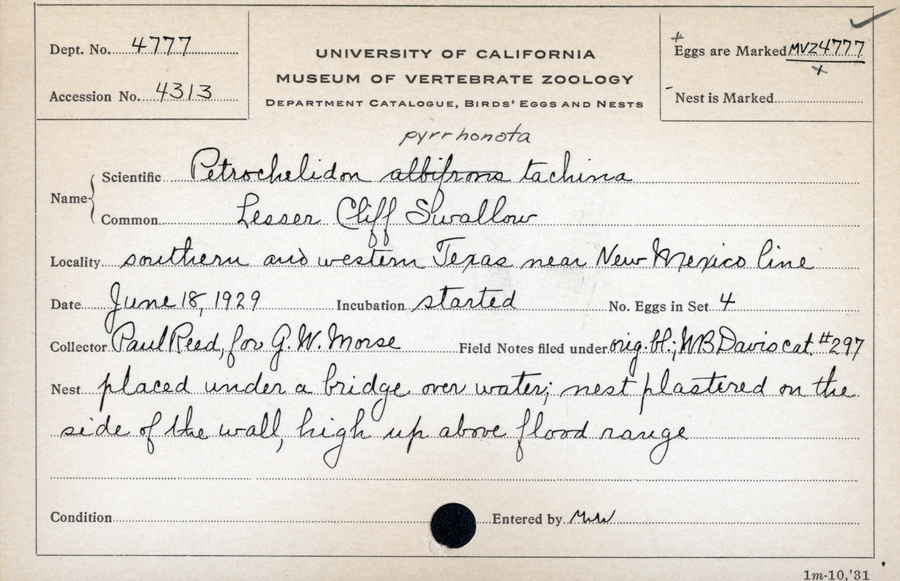 Dept. No. 4777
Accession No. 4313
UNIVERSITY OF CALIFORNIA
MUSEUM OF VERTEBRATE ZOOLOGY
DEPARTMENT CATALOGUE, BIRDS' EGGS AND NESTS
Eggs are Marked MVZ4777
+
x
Nest is Marked
pyrrhonota
Name Scientific Petrochelidon albifrons tachina
Common Lesser Cliff Swallow
Locality southern and western Texas near New Mexico line
Date June 18, 1929 Incubation started No. Eggs in Set 4
Collector Paul Reed, for G. W. Morse Field Notes filed under orig. bl.; WB Davis cat. #297
Nest placed under a bridge over water; nest plastered on the
side of the wall, high up above flood range
Condition Entered by
1m-10,'31